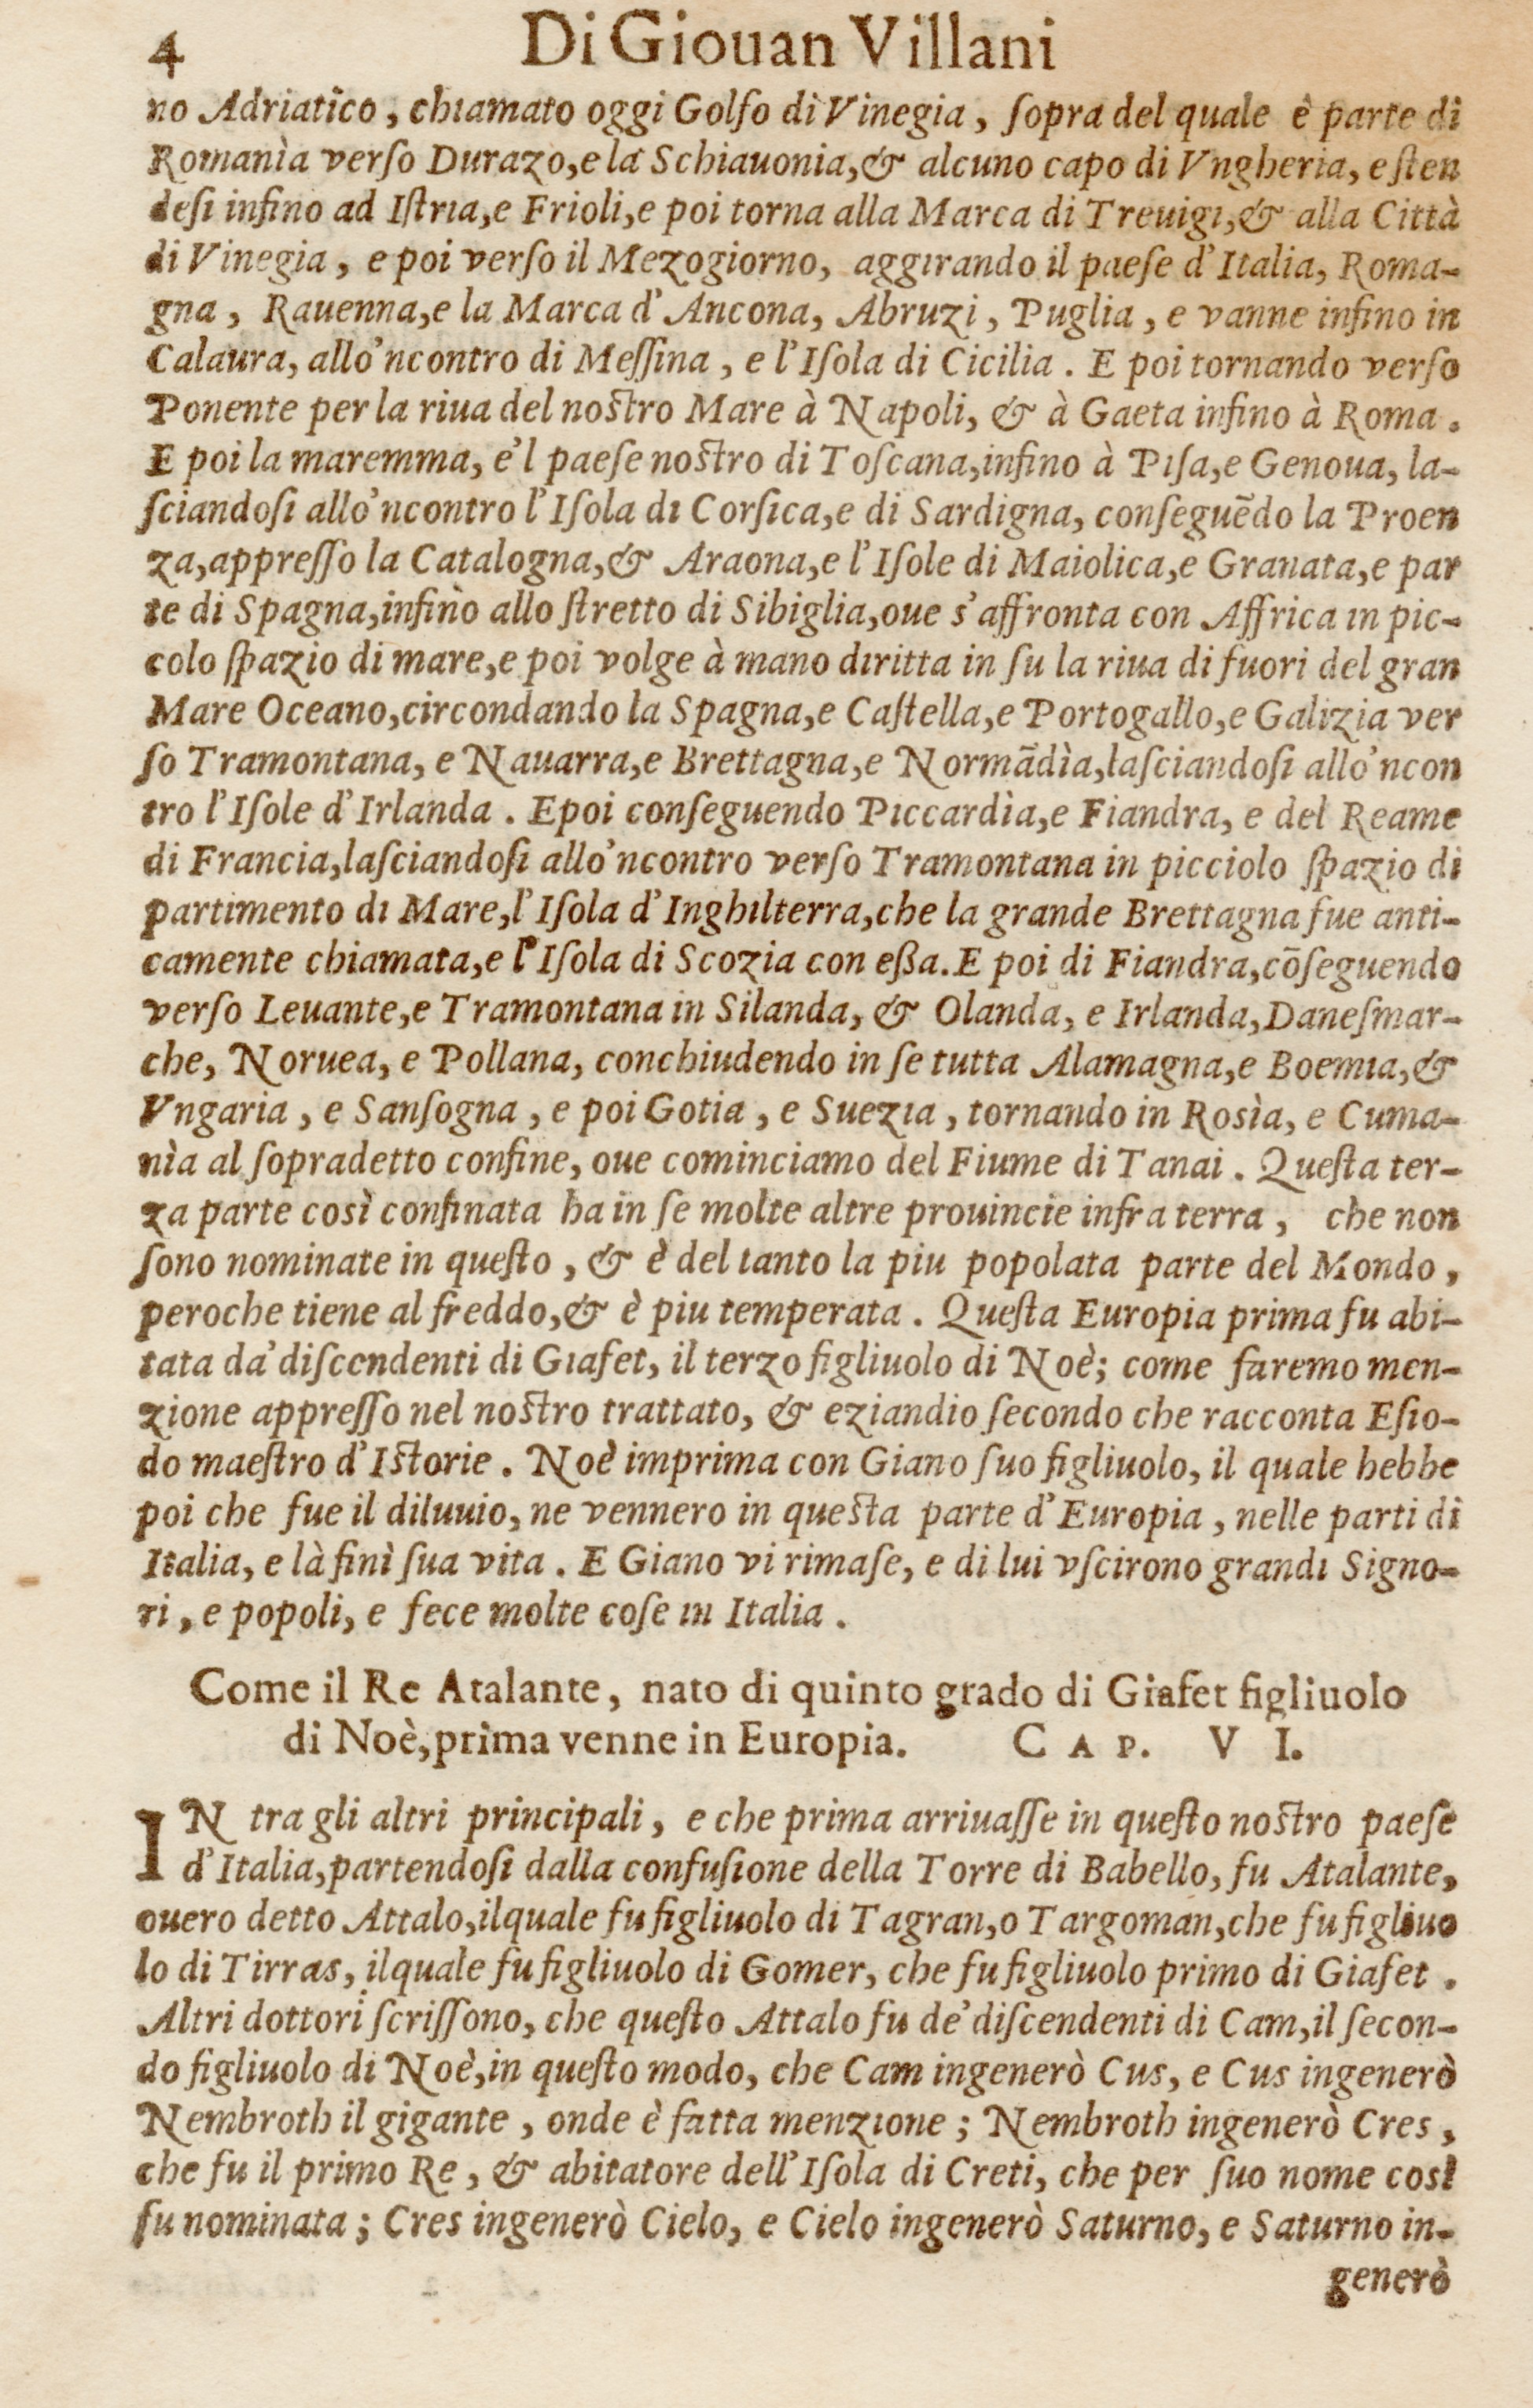 4 Di Giouan Villani
no Adriatico, chiamato oggi Golfo di Vinegia, ſopra del quale è parte di
Romanìa verſo Durazo,e la Schiauonia,& alcuno capo di Vngheria, e ſten
deſi infino ad Iſtria,e Frioli,e poi torna alla Marca di Treuigi,& alla Città
di Vinegia, e poi verſo il Mezogiorno, aggirando il paeſe d'Italia, Roma-
gna, Rauenna,e la Marca d'Ancona, Abruzi, Puglia, e vanne infino in
Calaura, allo'ncontro di Meſſina, e l'Iſola di Cicilia. E poi tornando verſo
Ponente per la riua del noſtro Mare à Napoli, & à Gaeta infino à Roma.
E poi la maremma, e'l paeſe noſtro di Toſcana,infino à Piſa,e Genoua, la-
ſciandoſi allo'ncontro l'Iſola di Corſica,e di Sardigna, conſeguēdo la Proen
za,appreſſo la Catalogna,& Araona,e l'Iſole di Maiolica,e Granata,e par
te di Spagna,infino allo ſtretto di Sibiglia,oue s'affronta con Affrica in pic-
colo ſpazio di mare,e poi volge à mano diritta in ſu la riua di fuori del gran
Mare Oceano,circondando la Spagna,e Caſtella,e Portogallo,e Galizia ver
ſo Tramontana, e Nauarra,e Brettagna,e Normādìa,laſciandoſi allo'ncon
tro l'Iſole d'Irlanda. E poi conſeguendo Piccardìa,e Fiandra, e del Reame
di Francia,laſciandoſi allo'ncontro verſo Tramontana in picciolo ſpazio di
partimento di Mare,l'Iſola d'Inghilterra,che la grande Brettagna fue anti-
camente chiamata,e l'Iſola di Scozia con eßa. E poi di Fiandra,cōſeguendo
verſo Leuante,e Tramontana in Silanda, & Olanda, e Irlanda,Daneſmar-
che, Noruea, e Pollana, conchiudendo in ſe tutta Alamagna,e Boemia,&
Vngaria, e Sanſogna, e poi Gotia, e Suezia, tornando in Rosìa, e Cuma-
nìa al ſopradetto confine, oue cominciamo del Fiume di Tanai. Queſta ter-
za parte così confinata ha in ſe molte altre prouincie infra terra, che non
ſono nominate in queſto, & è del tanto la piu popolata parte del Mondo,
peroche tiene al freddo,& è piu temperata. Queſta Europia prima fu abi-
tata da'diſcendenti di Giafet, il terzo figliuolo di Noè; come faremo men-
zione appreſſo nel noſtro trattato, & eziandio ſecondo che racconta Eſio-
do maeſtro d'Iſtorie. Noè imprima con Giano ſuo figliuolo, il quale hebbe
poi che fue il diluuio, ne vennero in queſta parte d'Europia, nelle parti di
Italia, e là finì ſua vita. E Giano vi rimaſe, e di lui vſcirono grandi Signo-
ri, e popoli, e fece molte coſe in Italia.
Come il Re Atalante, nato di quinto grado di Giafet figliuolo
di Noè,prima venne in Europia. CAP. VI.
IN tra gli altri principali, e che prima arriuaſſe in queſto noſtro paeſe
d'Italia,partendoſi dalla confuſione della Torre di Babello, fu Atalante,
ouero detto Attalo,ilquale fu figliuolo di Tagran,o Targoman,che fu figliuo
lo di Tirras, ilquale fu figliuolo di Gomer, che fu figliuolo primo di Giafet.
Altri dottori ſcriſſono, che queſto Attalo fu de'diſcendenti di Cam,il ſecon-
do figliuolo di Noè,in queſto modo, che Cam ingenerò Cus, e Cus ingenerò
Nembroth il gigante, onde è fatta menzione; Nembroth ingenerò Cres,
che fu il primo Re, & abitatore dell'Iſola di Creti, che per ſuo nome così
fu nominata; Cres ingenerò Cielo, e Cielo ingenerò Saturno, e Saturno in-
generò